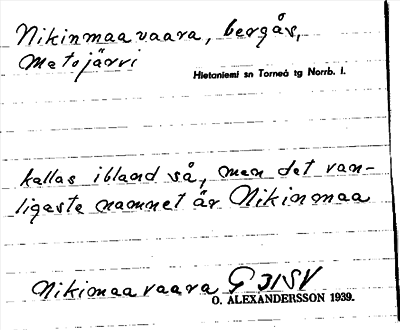 Nikinmaavaara, bergås,
Matojärvi
Hietaniemi sn Torneå tg Norrb. l.
kallas ibland så, men det van-
ligaste namnet är Nikinmaa
Nikinmaavaara G 31 SV
O. ALEXANDERSSON 1939.